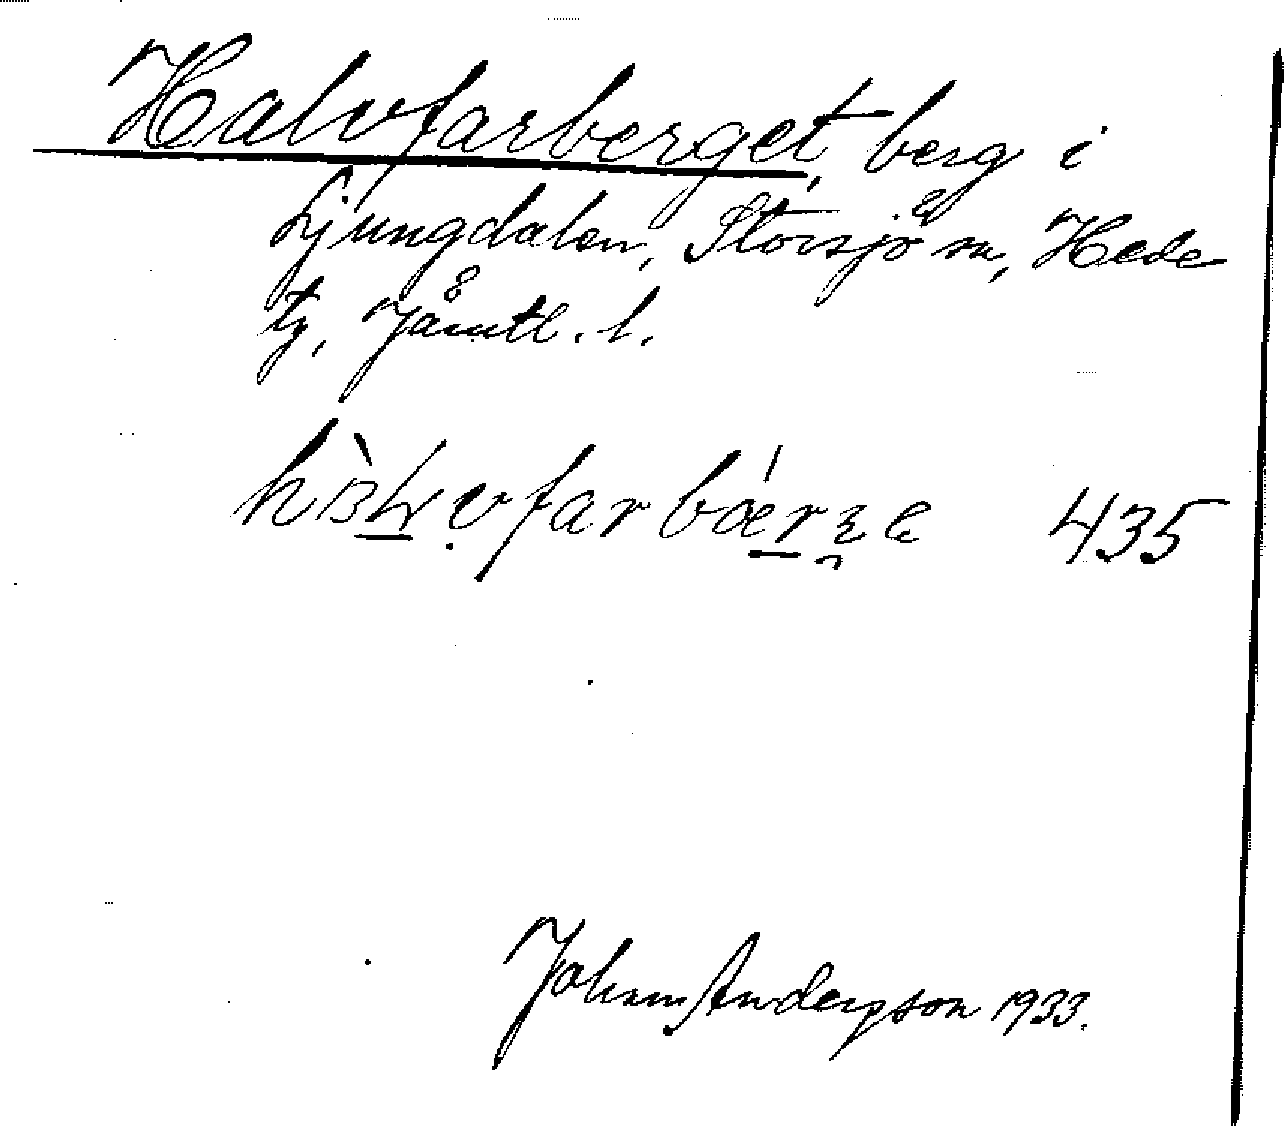 Halvfarberget, berg i
Ljungdalen, Storsjö sn, Hede
tg, Jämtl. l.
435
Johan Anderson 1933.